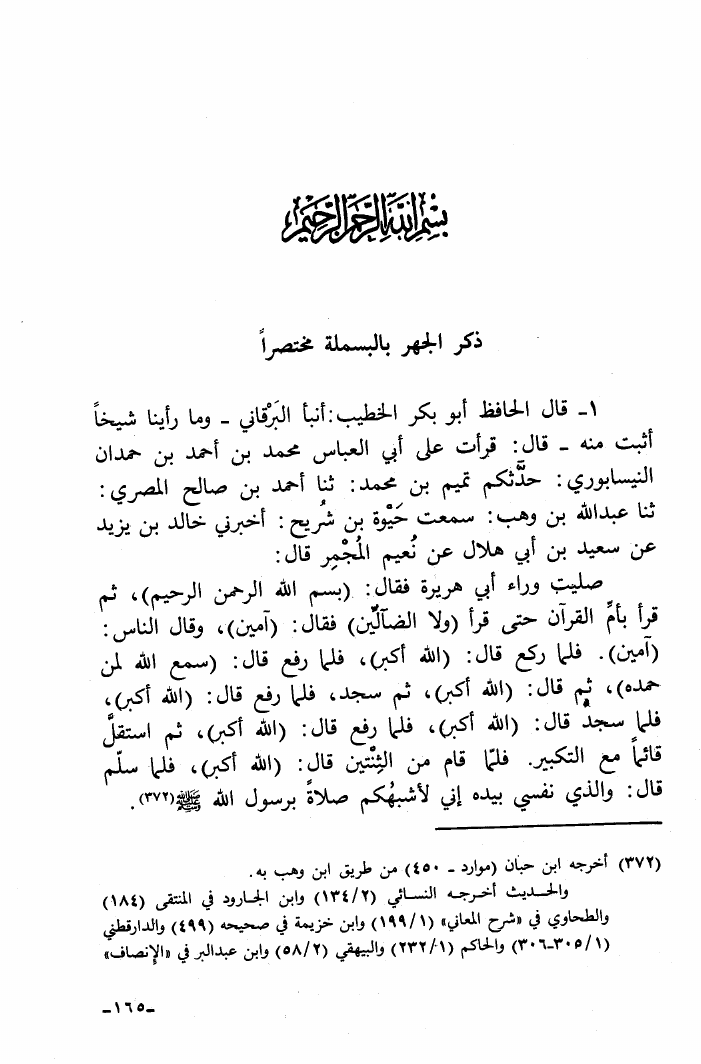 بسم الله الرحمن الرحيم
ذكر الجهر بالبسملة مختصراً
١ـ قال الحافظ أبو بكر الخطيب: أنبأ البَرْقاني ـ وما رأينا شيخاً
أثبت منه ـ قال: قرأت على أبي العباس محمد بن أحمد بن حمدان
النيسابوري: حدَّثكم تميم بن محمد: ثنا أحمد بن صالح المصري:
ثنا عبدالله بن وهب: سمعت حَيْوة بن شُريح: أخبرني خالد بن يزيد
عن سعيد بن أبي هلال عن نُعيم المُجْمِر قال:
صليت وراء أبي هريرة فقال: (بسم الله الرحمن الرحيم)، ثم
قرأ بأمِّ القرآن حتى قرأ (ولا الضآلّين) فقال: (آمين)، وقال الناس:
(آمين). فلما ركع قال: (الله أكبر)، فلما رفع قال: (سمع الله لمن
حمده)، ثم قال: (الله أكبر)، ثم سجد، فلما رفع قال: (الله أكبر)،
فلما سجد قال: (الله أكبر)، فلما رفع قال: (الله أكبر)، ثم استقلَّ
قائماً مع التكبير. فلمّا قام من الثِنْتين قال: (الله أكبر)، فلما سلّم
قال: والذي نفسي بيده إني لأشبهُكم صلاةً برسول الله ﷺ(٣٧٢).
(٣٧٢) أخرجه ابن حبان (موارد ـ ٤٥٠) من طريق ابن وهب به.
والحديث أخرجه النسائي (١٣٤/٢) وابن الجارود في المنتقى (١٨٤)
والطحاوي في «شرح المعاني» (١٩٩/١) وابن خزيمة في صحيحه (٤٩٩) والدارقطني
(٣٠٥/١-٣٠٦) والحاكم (٢٣٢/١) والبيهقي (٥٨/٢) وابن عبدالبر في «الإنصاف»
ـ١٦٥ـ